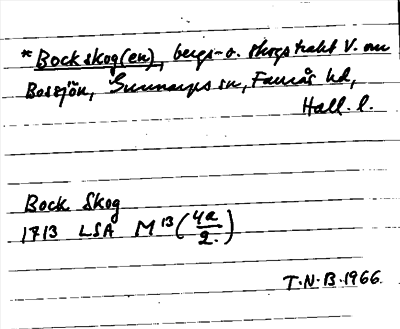 *Bockskog(en), bergs- o. skogstrakt V. om
Bossjön, Gunnarps sn, Faurås hd,
Hall. l.
Bock Skog
1713 LSA M 13 (4a/2)
T.N.B. 1966.